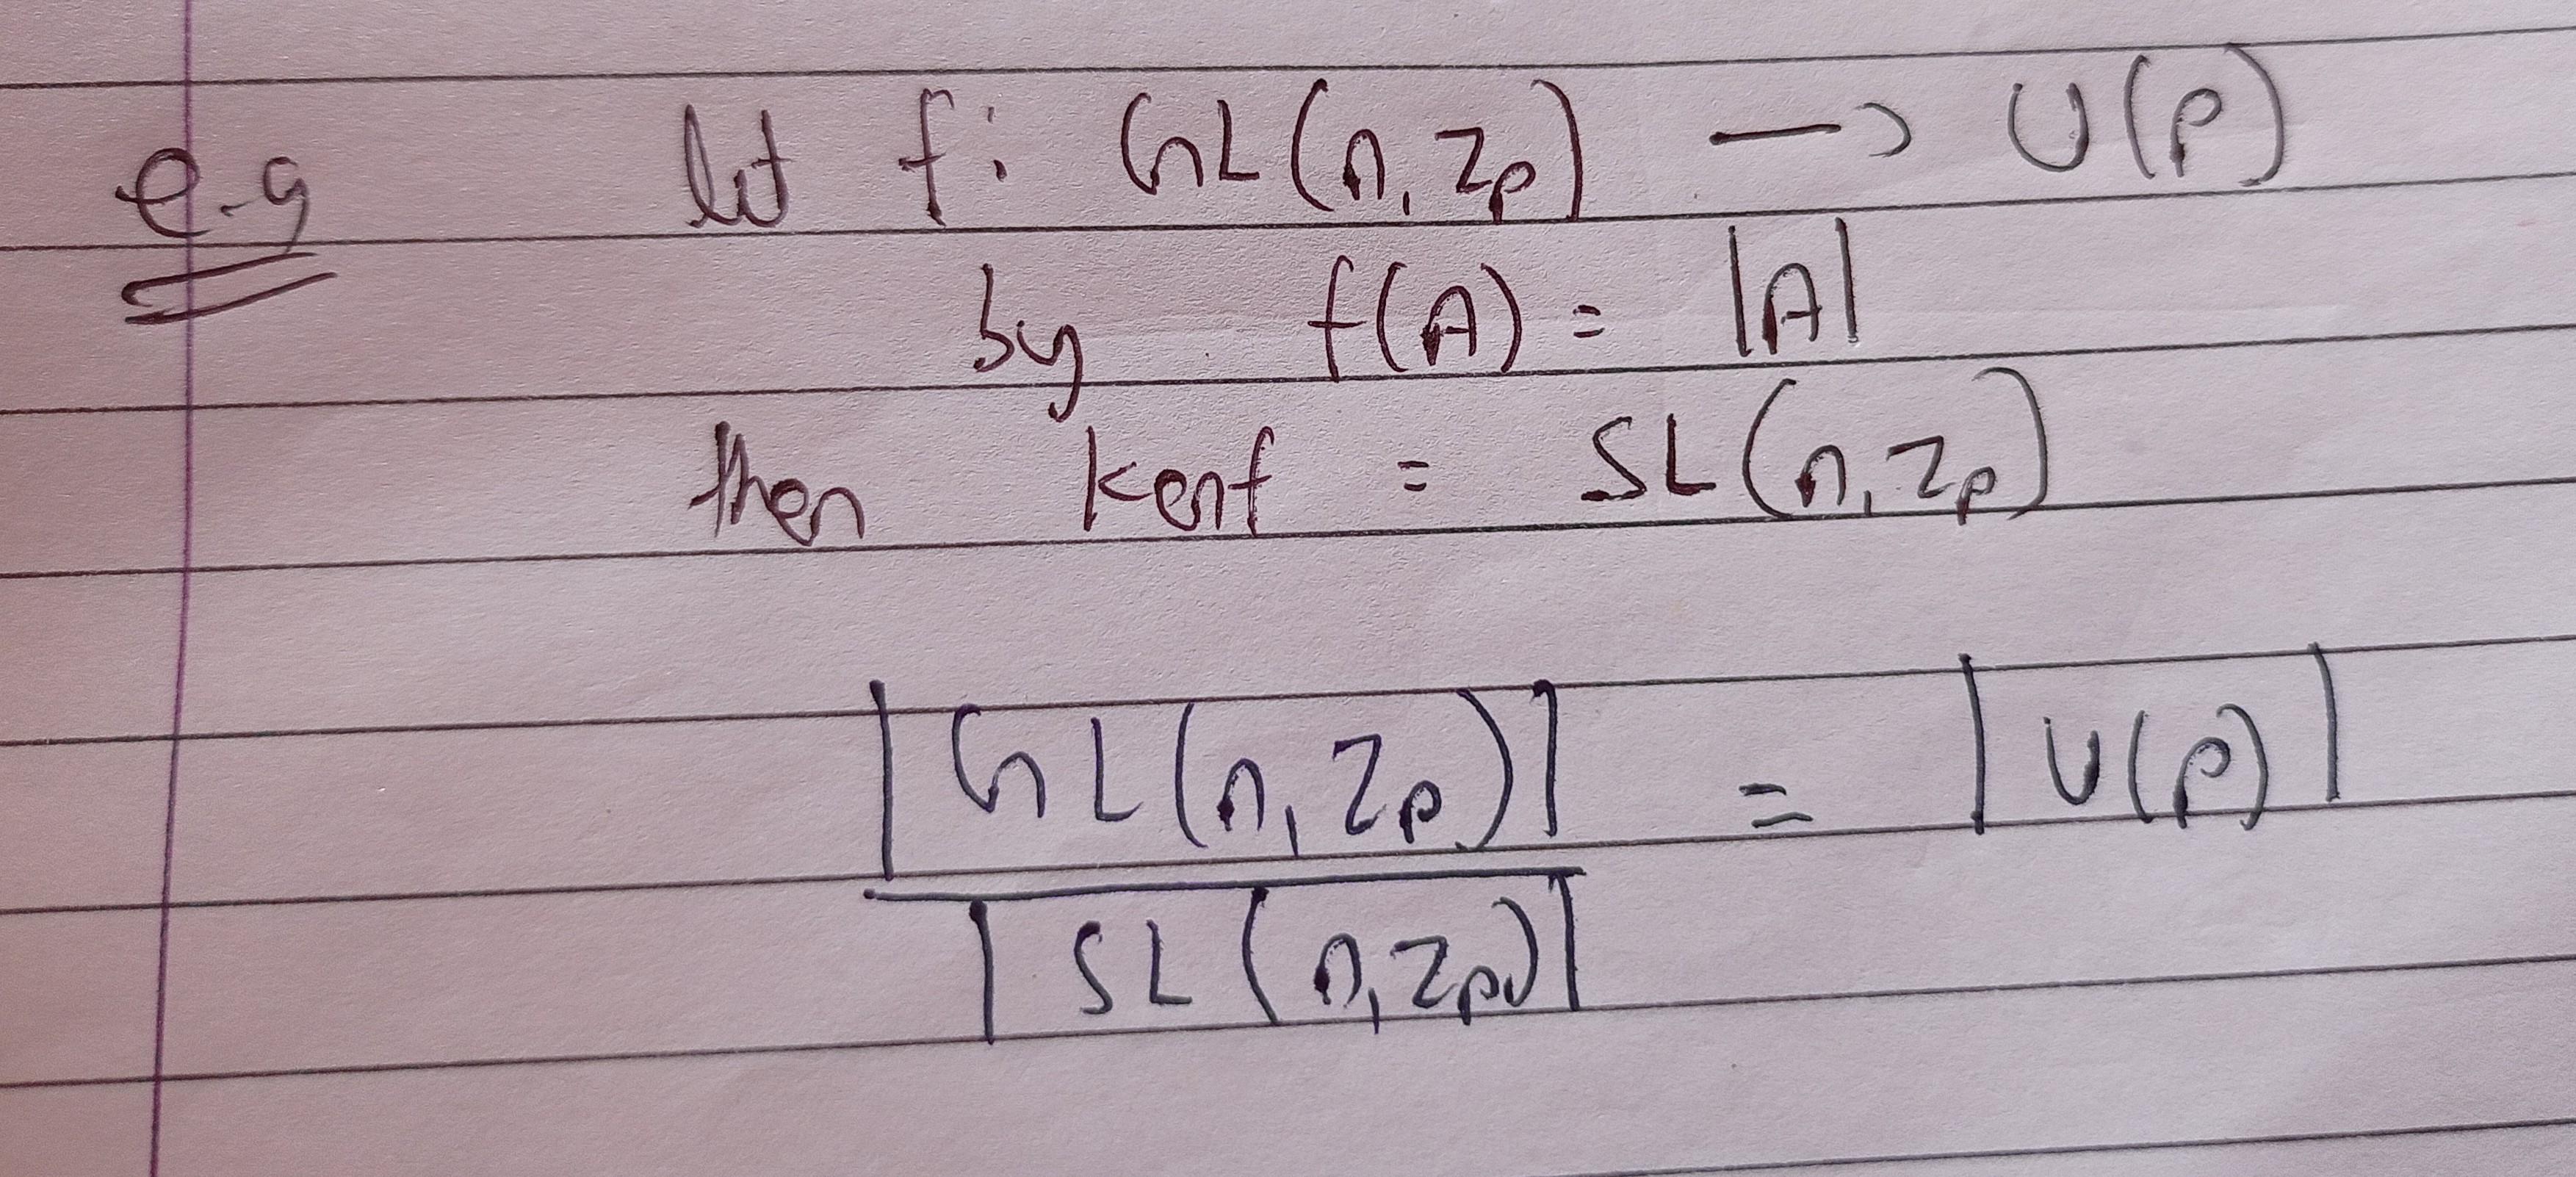 e.g let f: GL(n, Zp) → U(p)
by f(A) = |A|
then kerf = SL(n, Zp)
|GL(n, Zp)| = |U(p)|
|SL(n, Zp)|